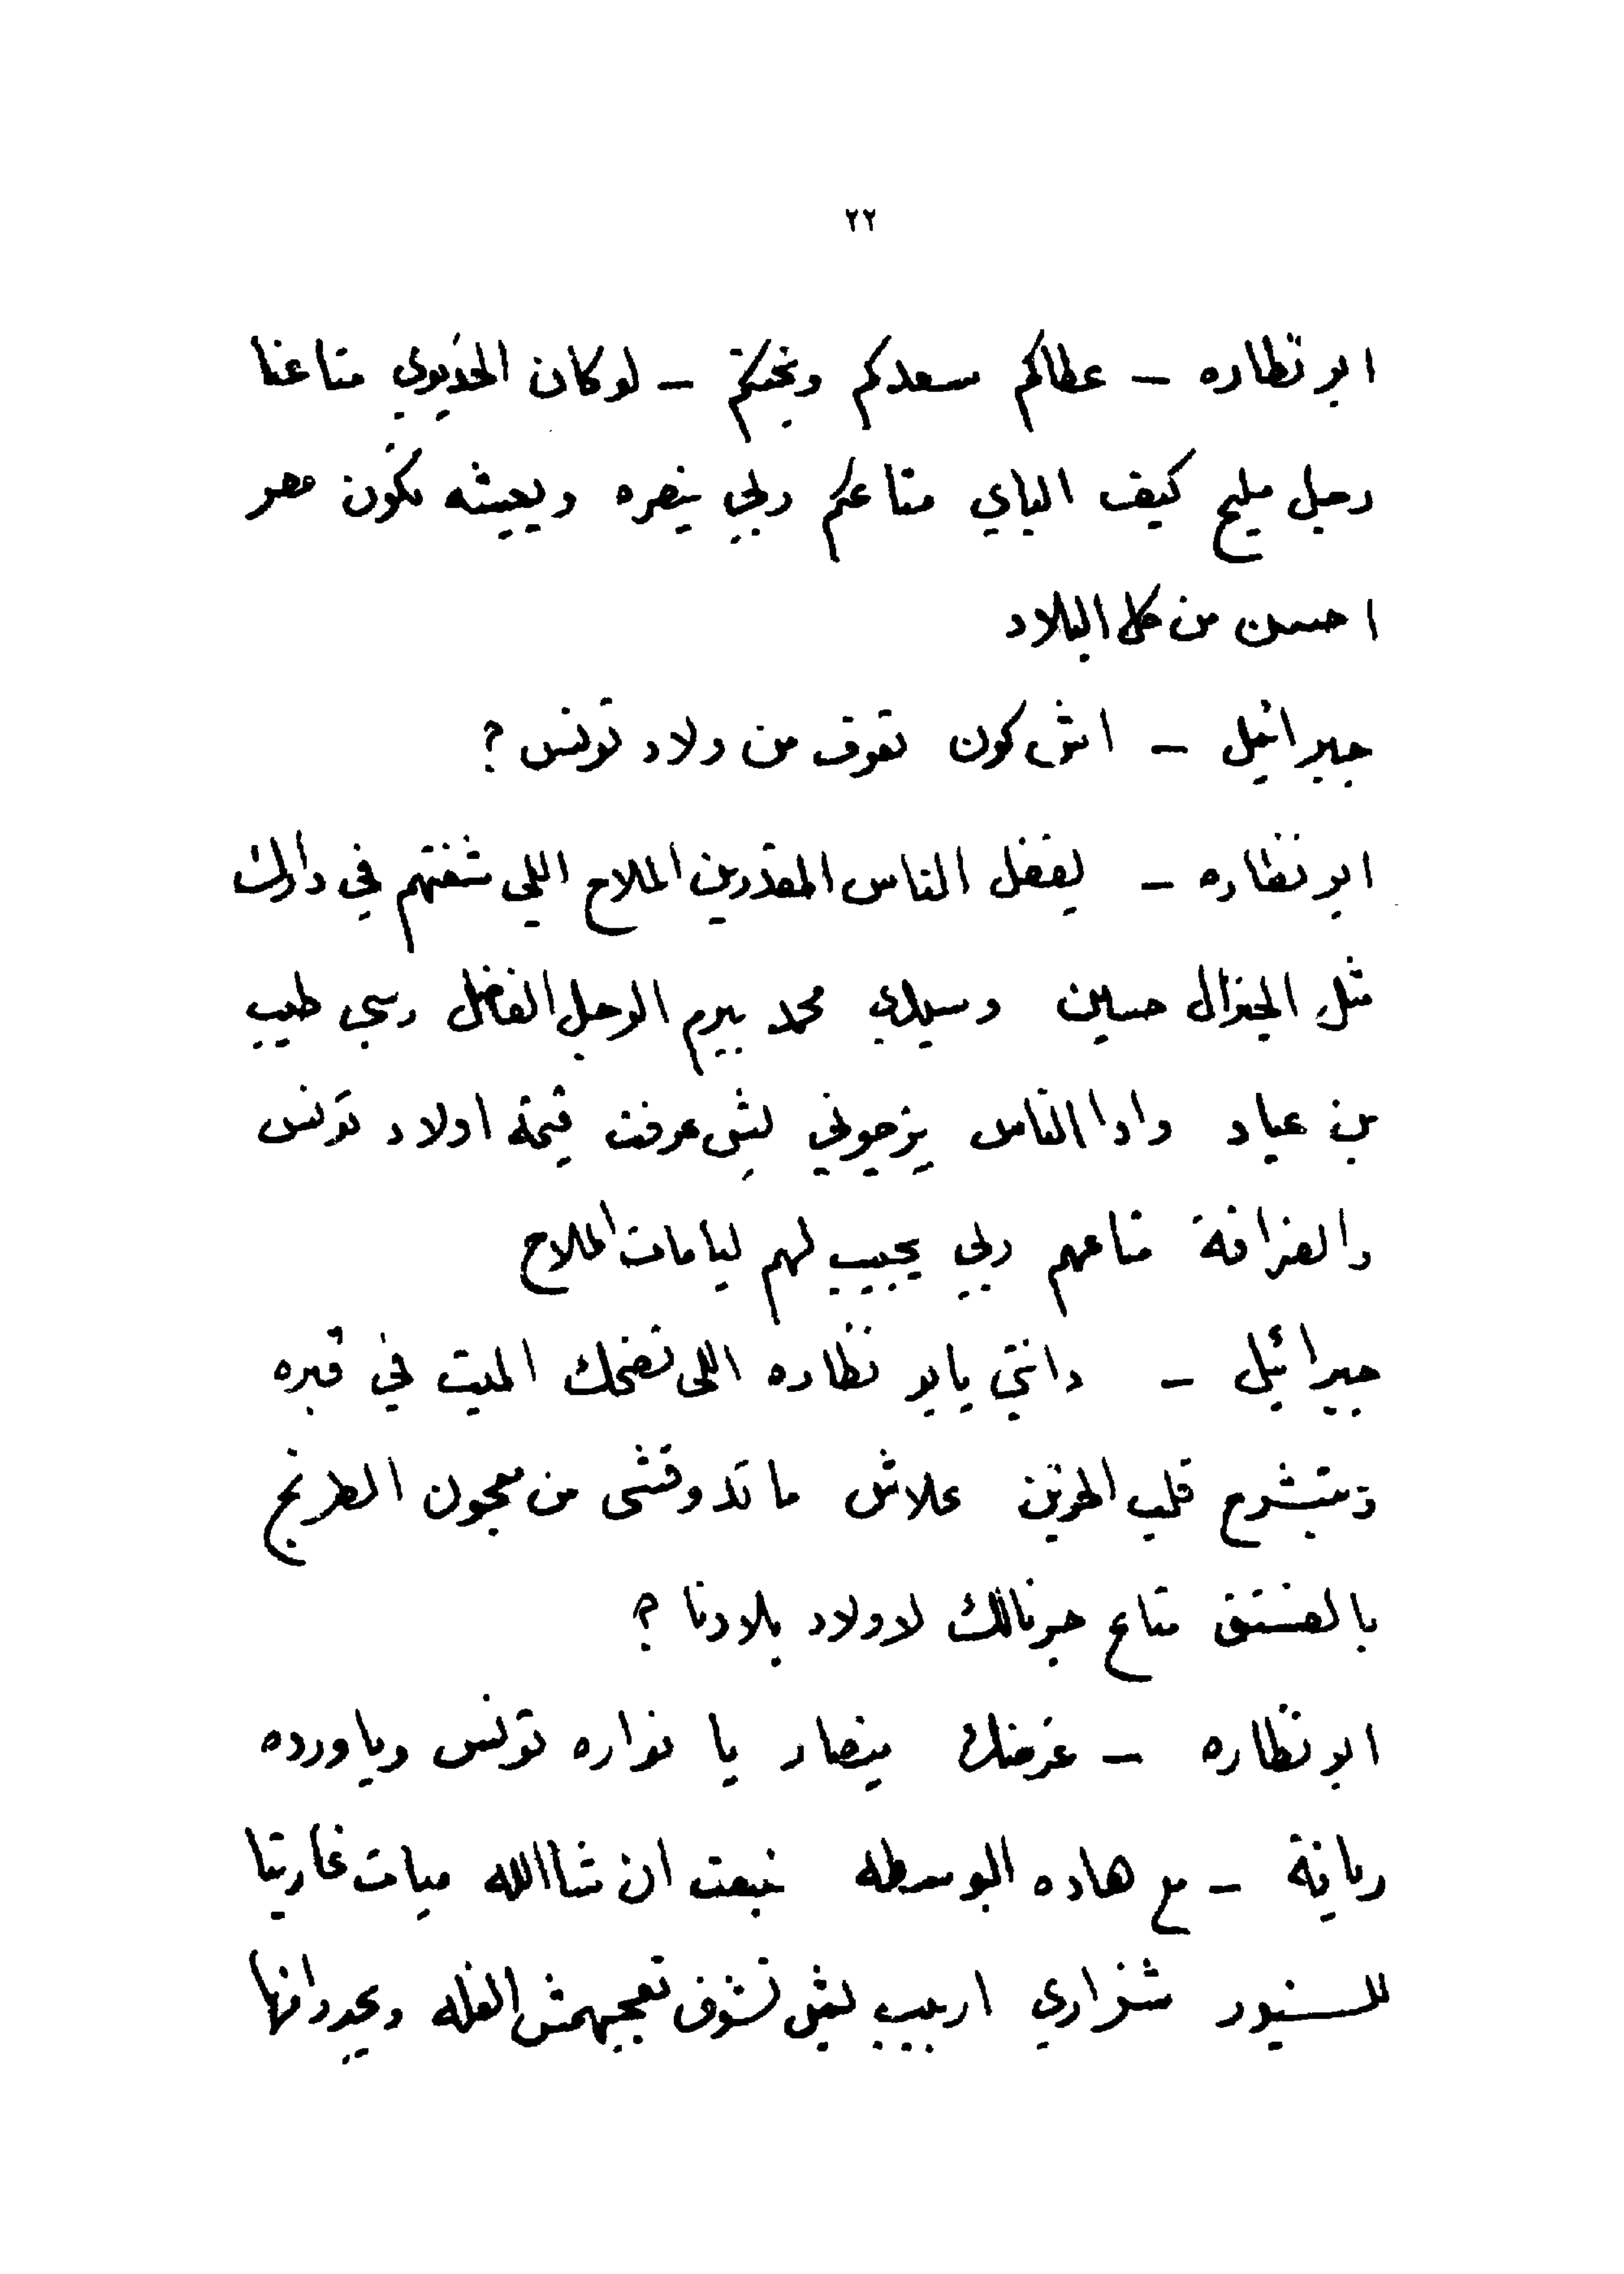 ٢٢
ابو نظاره – عطاكم سعدكم وبختكم – لو كان الخديوي متاعنا
رجل مليح كيف الباي متاعكم ربي ينصره ويعيشه تكون مصر
احسن من كل البلاد
جبرائيل – اش كون تعرف من ولاد تونس ؟
ابو نظاره – بعض الناس المقدرين الملاح اللي شفتهم في دارك
مثل الجنرال حسين وسيدي محمد بيرم الرجل الفاضل وسي طيب
بن عياد وادا الناس يزجوني بش عرفت قيمة اولاد تونس
والضرافة متاعهم ربي يجيب لهم ليامات الملاح
جبرائيل – وانتي يابو نظاره اللى تضحك الميت في قبره
وتبشرح قلب الحزين علاش ما تدوقشى من معجون الطرنج
بالفستق متاع جرنالك لاولاد بلادنا ؟
ابو نظاره – غرضك ينصار يا نواره تونس وياورده
ريانة – مع هاده البوسطه نبعت ان شاالله ميات غاريتا
للسنيور شنزاري اربيب بش تشوف تعجبهمش الغله ويجدد انها